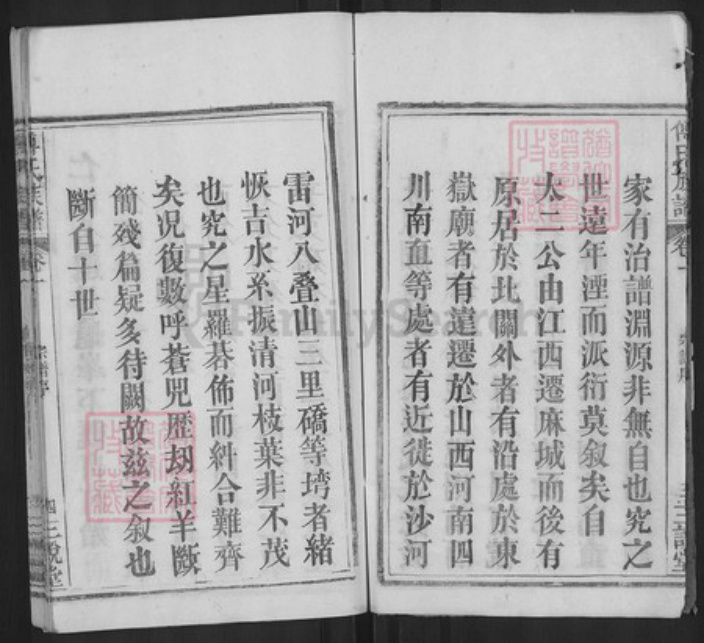 家有治譜淵源非無自也究之
世遠年湮而派衍莫叙矣自
太二公由江西遷麻城而後有
原居於北關外者有沿處於東
嶽廟者有遠遷於山西河南四
川南直等處者有近徙於沙河
雷河八叠山三里礄等塆者緒
恢吉水系振清河枝葉非不茂
也究之星羅碁佈而糾合難齊
矣况復數呼蒼兕歷刼紅羊斷
簡殘篇疑多待闕故兹之叙也
斷自十世
傅氏宗譜
卷一
宗譜序
四
三說堂
FamilySearch